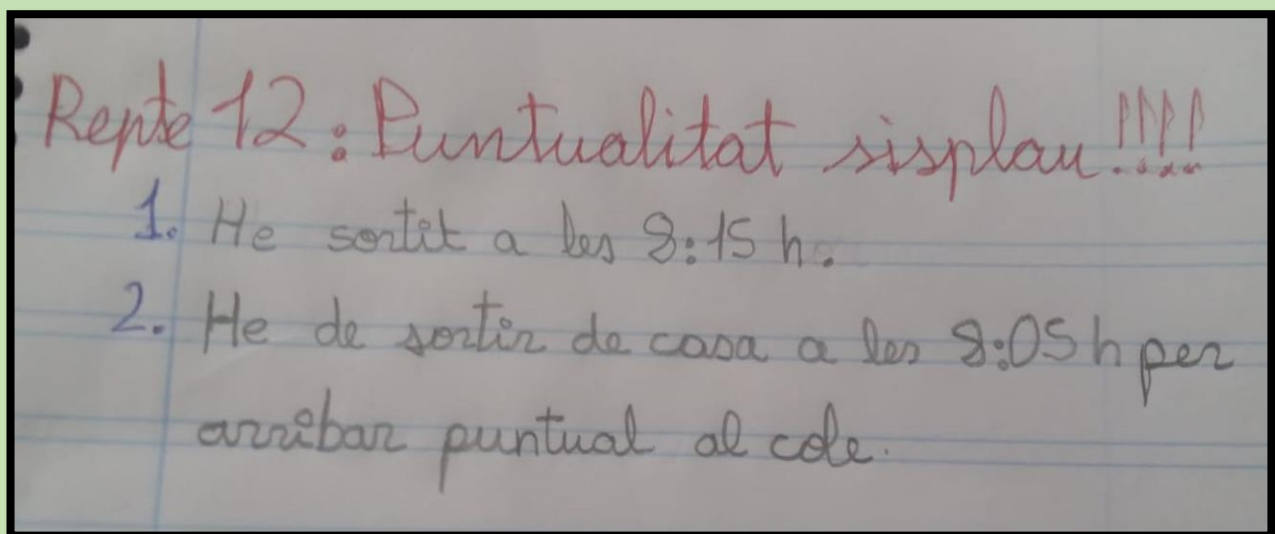 Repte 12: Puntualitat sisplau!!!!
1. He sortit a les 8:15 h.
2. He de sortir de casa a les 8:05 h per
arribar puntual al cole.